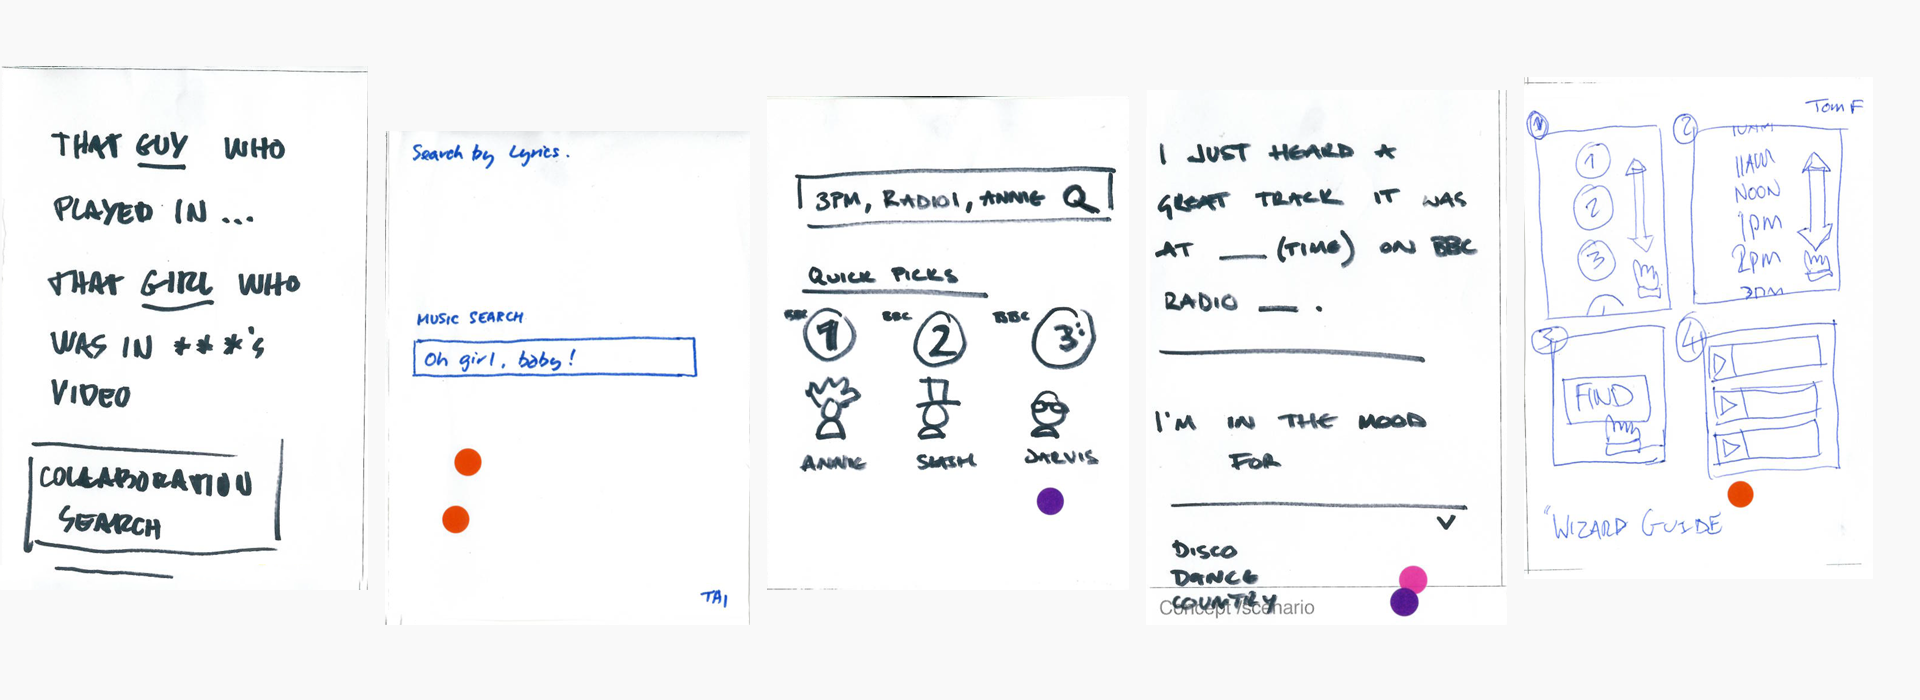 THAT GUY WHO
PLAYED IN ...
THAT GIRL WHO
WAS IN ***'s
VIDEO
COLLABORATION
SEARCH
Search by Lyrics.
MUSIC SEARCH
Oh girl, baby!
TAI
3PM, RADIO1, ANNIE
QUICK PICKS
BBC 1 BBC 2 BBC 3
ANNIE SLASH JARVIS
I JUST HEARD A
GREAT TRACK IT WAS
AT ___ (TIME) ON BBC
RADIO ___ .
I'M IN THE MOOD
FOR
DISCO
DANCE
COUNTRY
Concept/scenario
Tom F
1
1
2
3
2
10AM
11AM
NOON
1pm
2pm
3pm
3
FIND
4
"WIZARD GUIDE